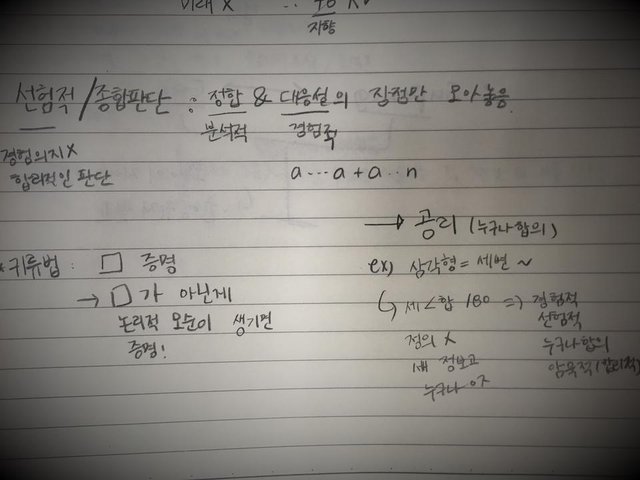 미래 X
지향
선험적/종합판단 : 정합 & 대응설의 장점만 모아놓음.
분석적 경험적
경험의지X
합리적인 판단
a...a + a..n
→ 공리 (누구나 합의)
*귀류법 : □ 증명
→ □가 아닌게
논리적 모순이 생기면
증명!
ex) 삼각형 = 세변 ~
세∠합 180 => 경험적
선험적
정의 X
누구나합의
새 정보고
암묵적(합리적)
누구나